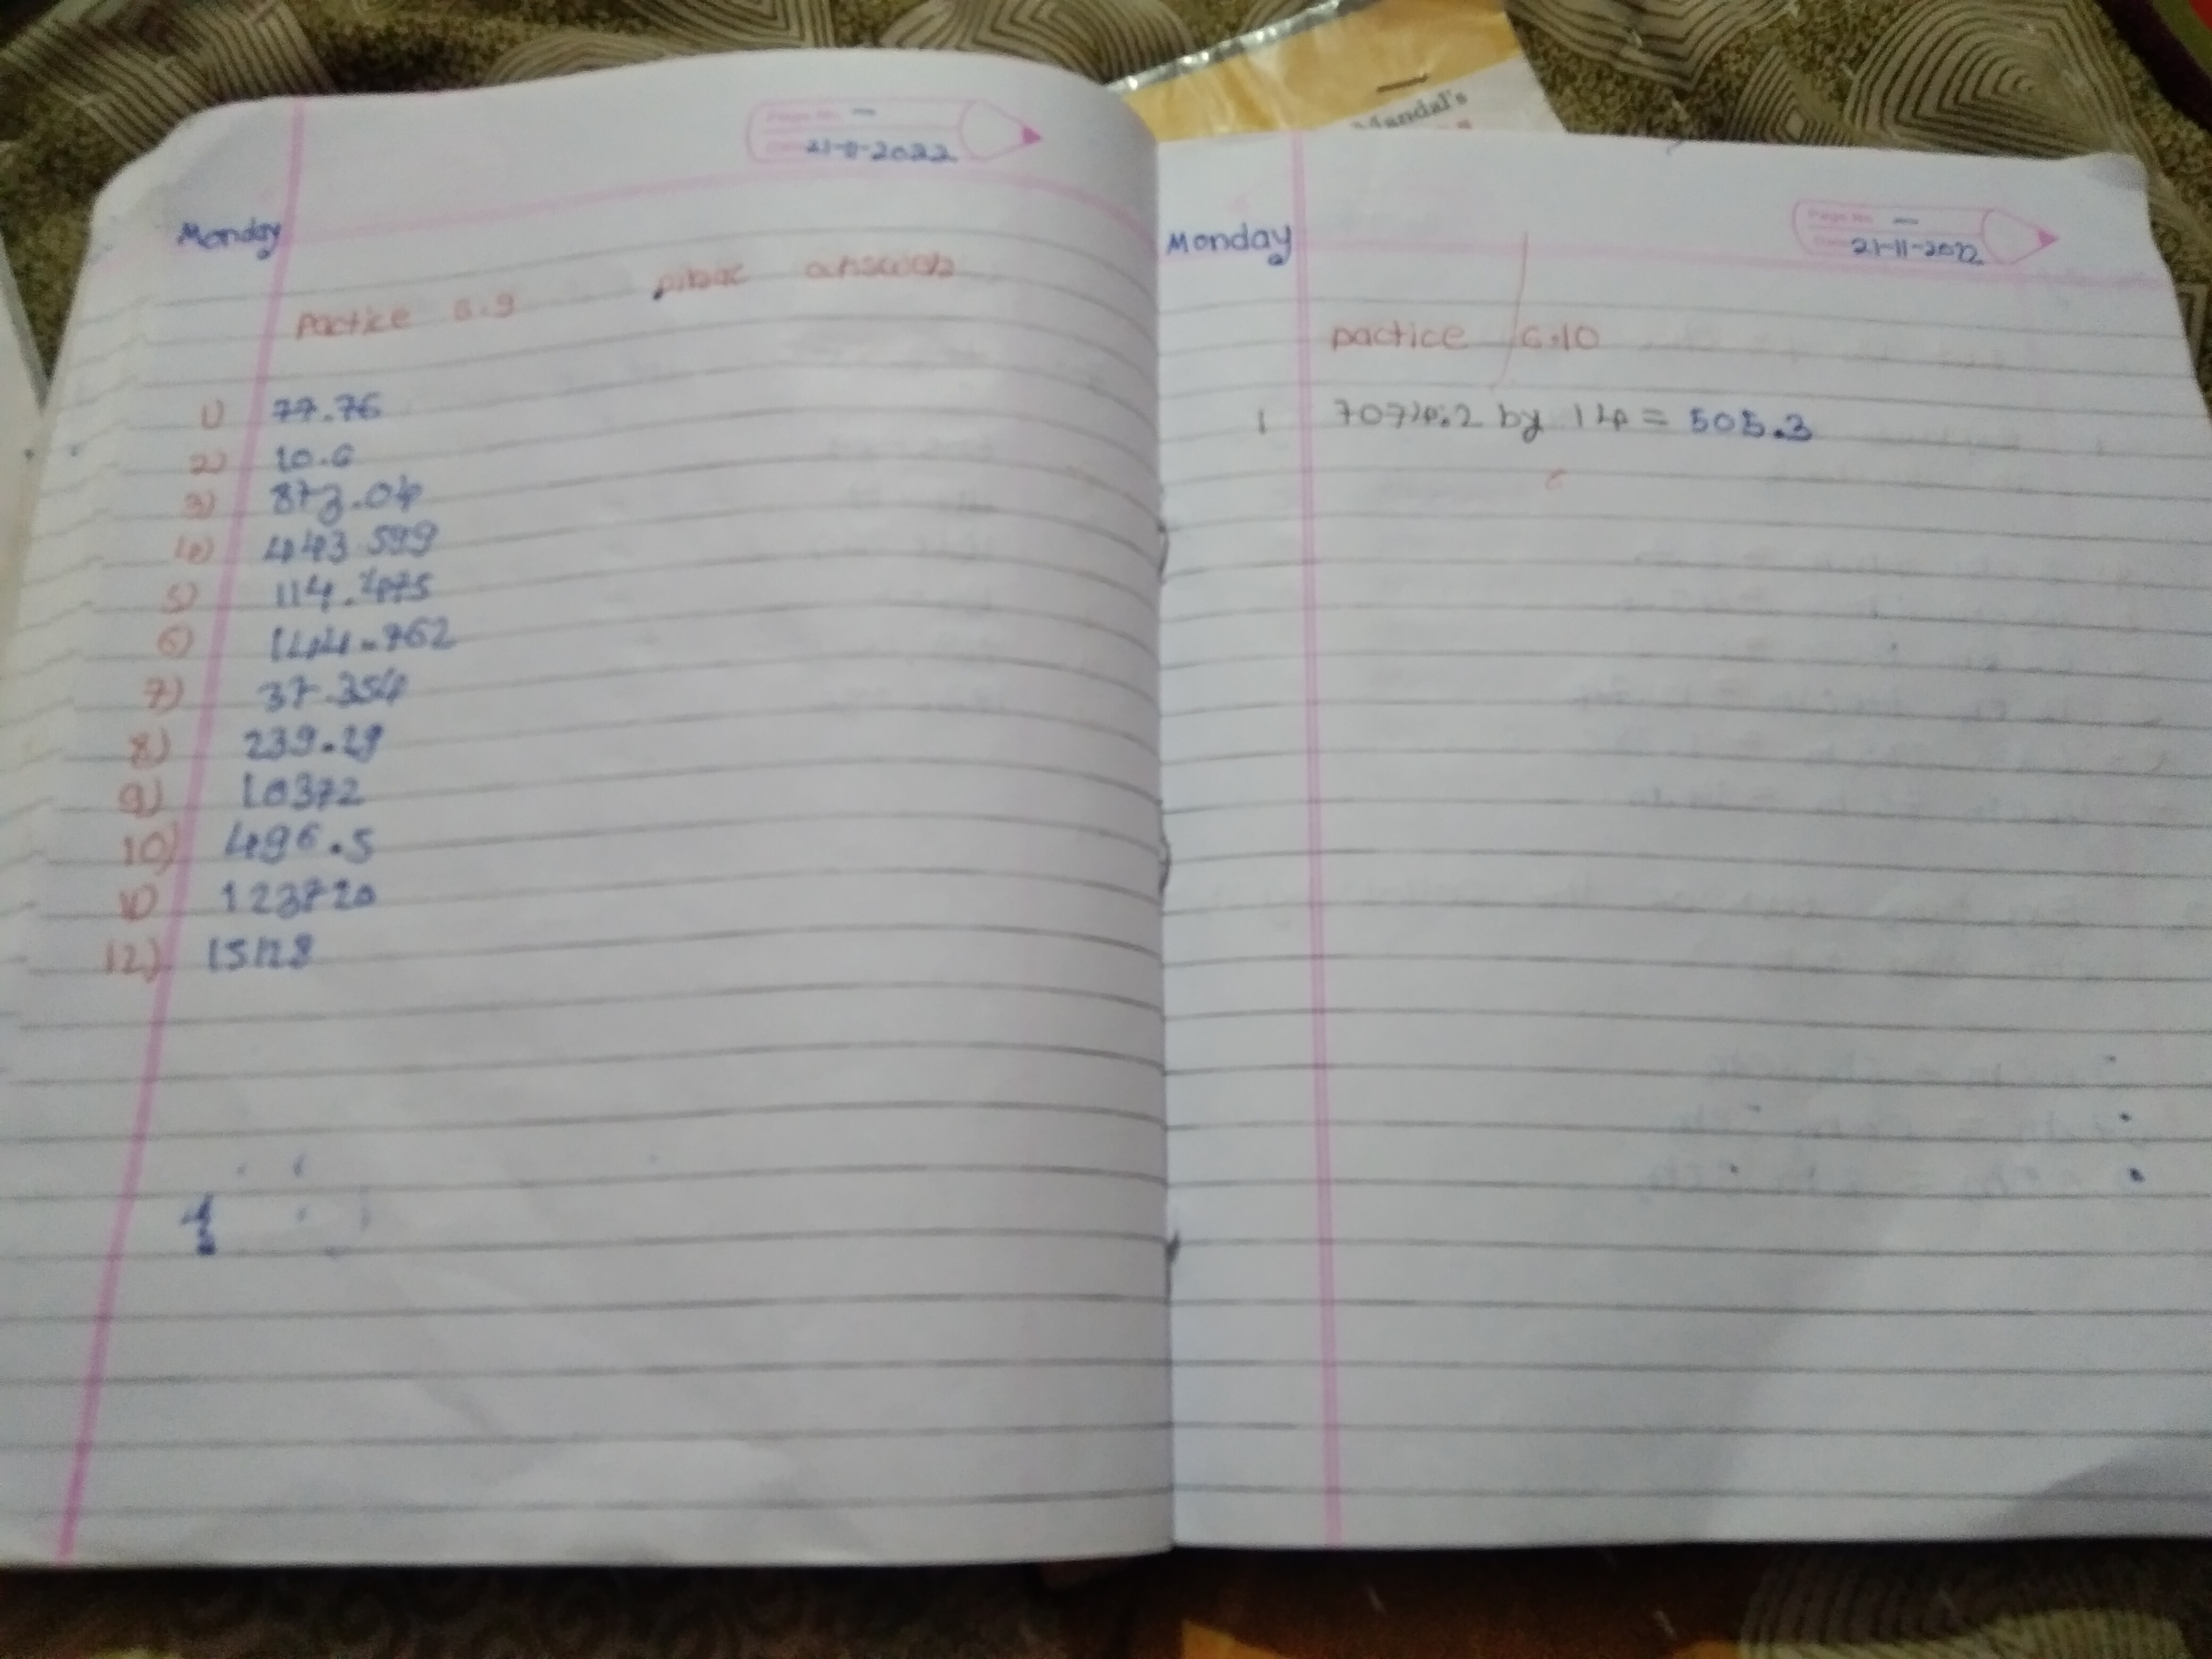 21-11-2022
Monday
Pactice 6.9
1) 77.76
2) 10.6
3) 873.04
4) 443.599
5) 114.475
6) 144.762
7) 37.354
8) 239.29
9) 10372
10) 496.5
11) 123720
12) 15128
Mandal's
21-11-2022
Monday
pactice 6.10
1 7074.2 by 14 = 505.3